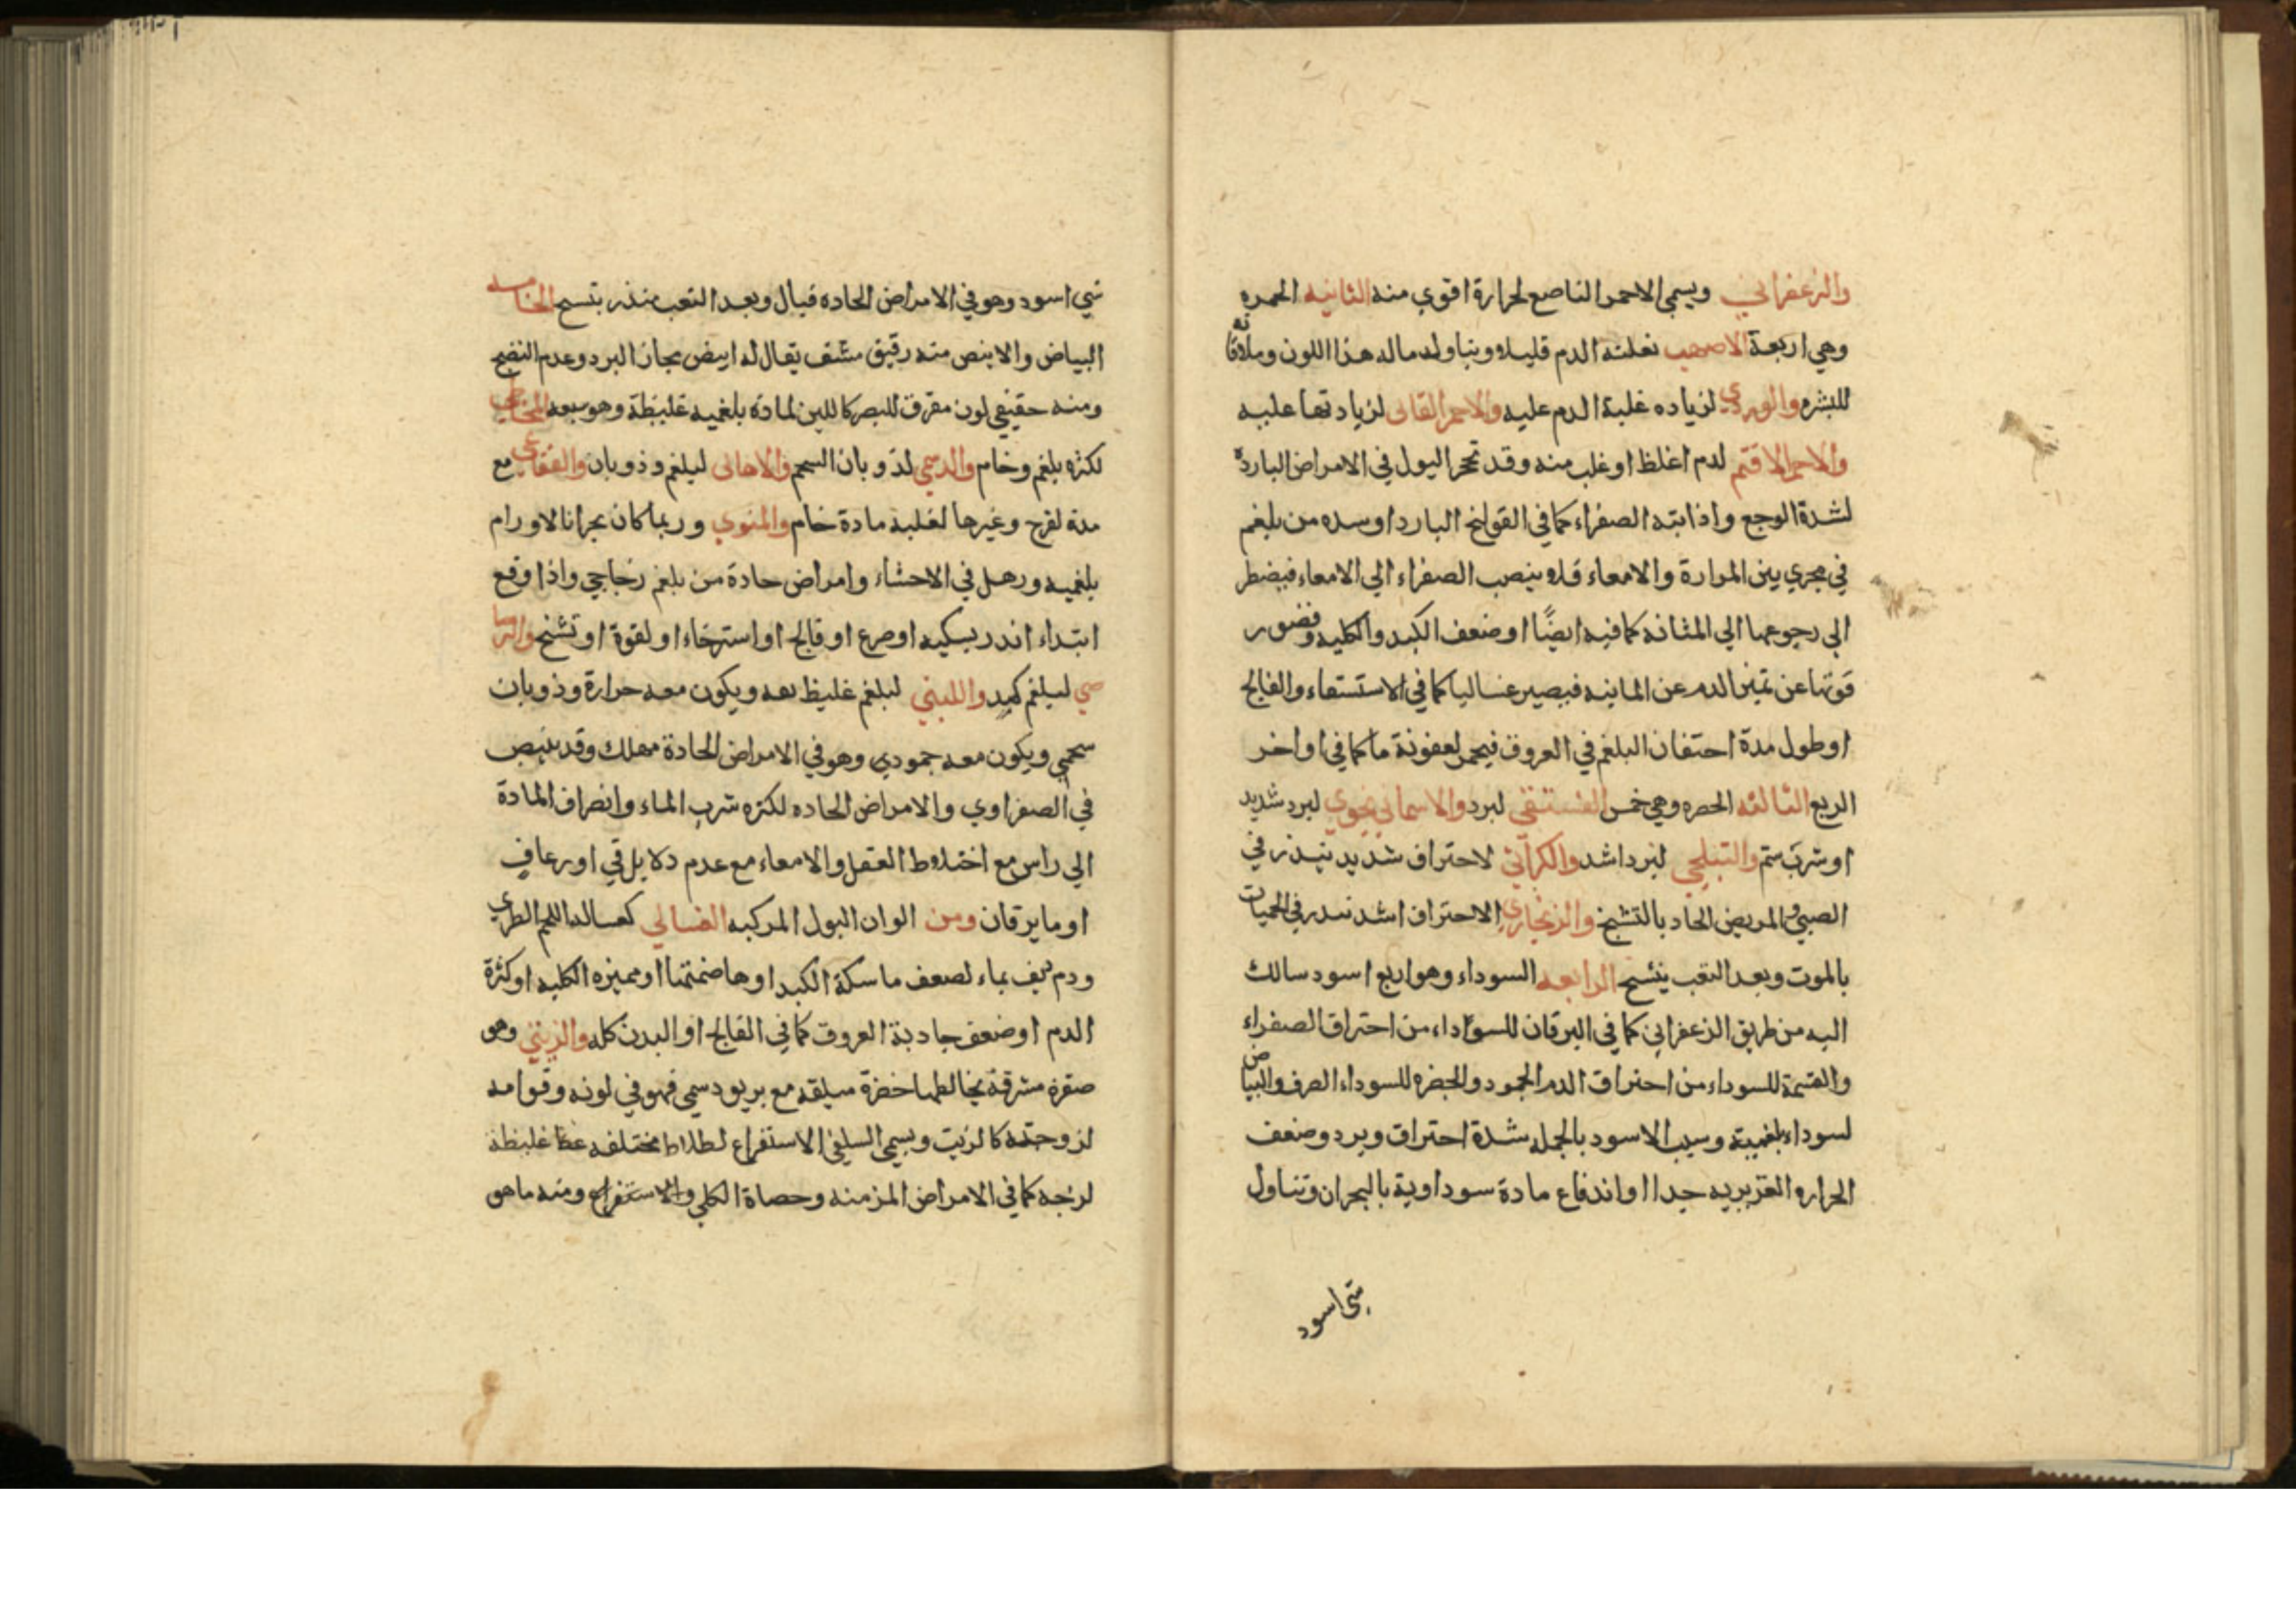 والزعفراني ويسمي الاحمر الناصع لحرارة اقوي منه الثانيه الحمره
وهي اربعة الاصهب لغلبة الدم قليلا ويتناوله ماله هذا اللون وملاقاته
للبشره والوردي لزياده غلبة الدم عليه والاحمر القاني لزيادتها عليه
والاحمر الاقتم لدم اغلظ او غلب منه وقد تحمر البول في الامراض الباردة
لشدة الوجع واذابته الصفراء كما في القولنج البارد او سده من بلغم
في مجري بين المرارة والامعاء فلا ينصب الصفراء الي الامعاء فيضطر
الي رجوعها الي المثانه كما فيه ايضًا او ضعف الكبد والكليه وقصور
قوتها عن تميز الدم عن المائيه فيصير غساليا كما في الاستسقاء والفالج
او طول مدة احتقان البلغم في العروق فيحمر لعفونة ما كما في اواخر
الربع الثالثه الخضره وهي خمس الفستقي لبرد والاسمانجوي لبرد شديد
او شرب ستم والنيلجي لبرد اشد والكراثي لاحتراق شديد ينذر في
الصبي والمريض الحاد بالتشنج والزنجاري الاحتراق اشد ينذر في الحميات
بالموت وبعد التعب يتسنج الرابعه السوداء وهو اربع اسود سالك
اليه من طريق الزعفراني كما في اليرقان للسوداء من احتراق الصفراء
والقتمة للسوداء من احتراق الدم الجمود والخضره للسوداء الصرف والبياض
لسوداء بلغمية وسبب الاسود بالجمله شدة احتراق وبرد وضعف
الحراره الغزيريه جدا او اندفاع مادة سوداوية بالبحران وتناول
شي اسود
شي اسود وهو في الامراض الحاده قبال وبعد التعب منذر بتسنج الخامسه
البياض والابيض منه رقيق مشف يقال له ابيض بجاز البرد وعدم النضج
ومنه حقيقي لون مفرق للبصر كاللبن لمادة بلغميه غليظة وهو سبعه المخاطي
لكثره بلغم وخام والدسمي لذوبان السحم والاهالى لبلغم وذوبان والفقاعي مع
مدة لقرح وغيرها لغلبه مادة خام والمنوي وربما كان بحرانا لاورام
بلغميه ورهل في الاحشاء وامراض حادة من بلغم زجاجي واذا وقع
ابتداء انذر بسكيه او صرع او فالج او استرخاء او لقوة او تشنج والرصا
صي لبلغم كمد واللبني لبلغم غليظ بعد ويكون معه حرارة وذوبان
سحمي ويكون معه جمودي وهو في الامراض الحادة مهلك وقد يبيض
في الصفراوي والامراض الحاده لكثره شرب الماء وانصراف المادة
الي راس مع اختلاط العقل والامعاء مع عدم دلايل قي او رعاف
او ما يرقان ومن الوان البول المركبه الغسالي كغساله اللحم الطري
ودم ديف بماء لضعف ماسكة الكبد او هاضمتها او مميزه الكليه او كثرة
الدم او ضعف جادبة العروق كما في الفالج او البدن كله والزيتي وهو
صفره مشرقة يخالطها خضرة سيلقه مع بريق دسمي فهو في لونه وقوامه
لزوجته كالزيت ويسمي السليقي الاستفراغ لطلاط مختلفه غظا غليظة
لزجه كما في الامراض المزمنه وحصاة الكلي والاستفراغ ومنه ما هو